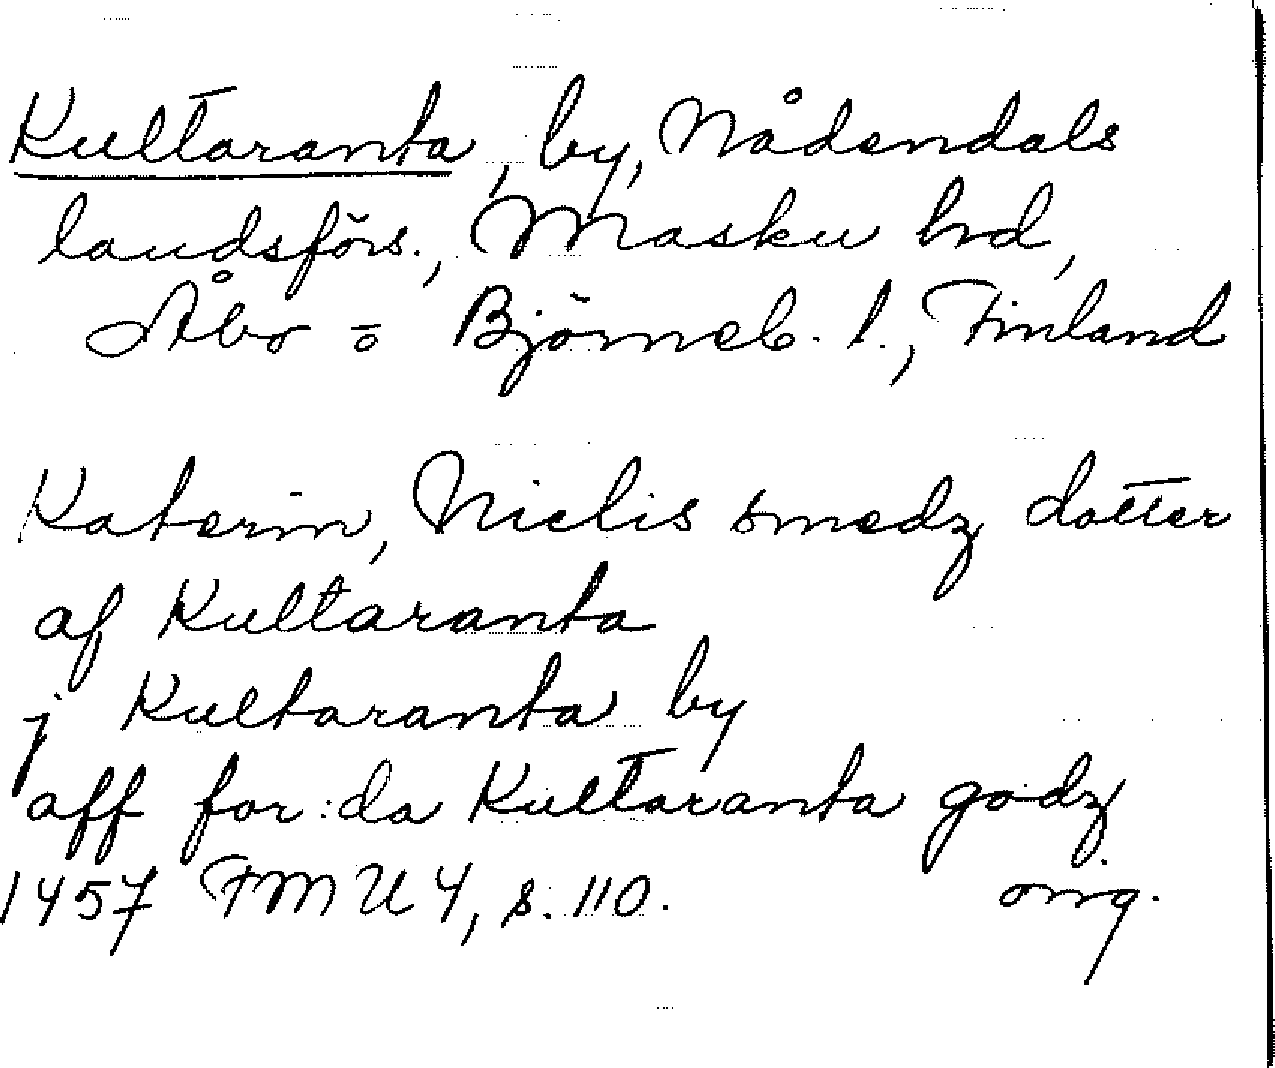 Kultaranta, by, Nådendals
landsförs., Masku hrd,
Åbo o Björneb. l., Finland
Katerin, Nielis smedz dotter
af Kultaranta
j Kultaranta by
aff for:da Kultaranta godz
1457 FMU 4, s. 110. orig.